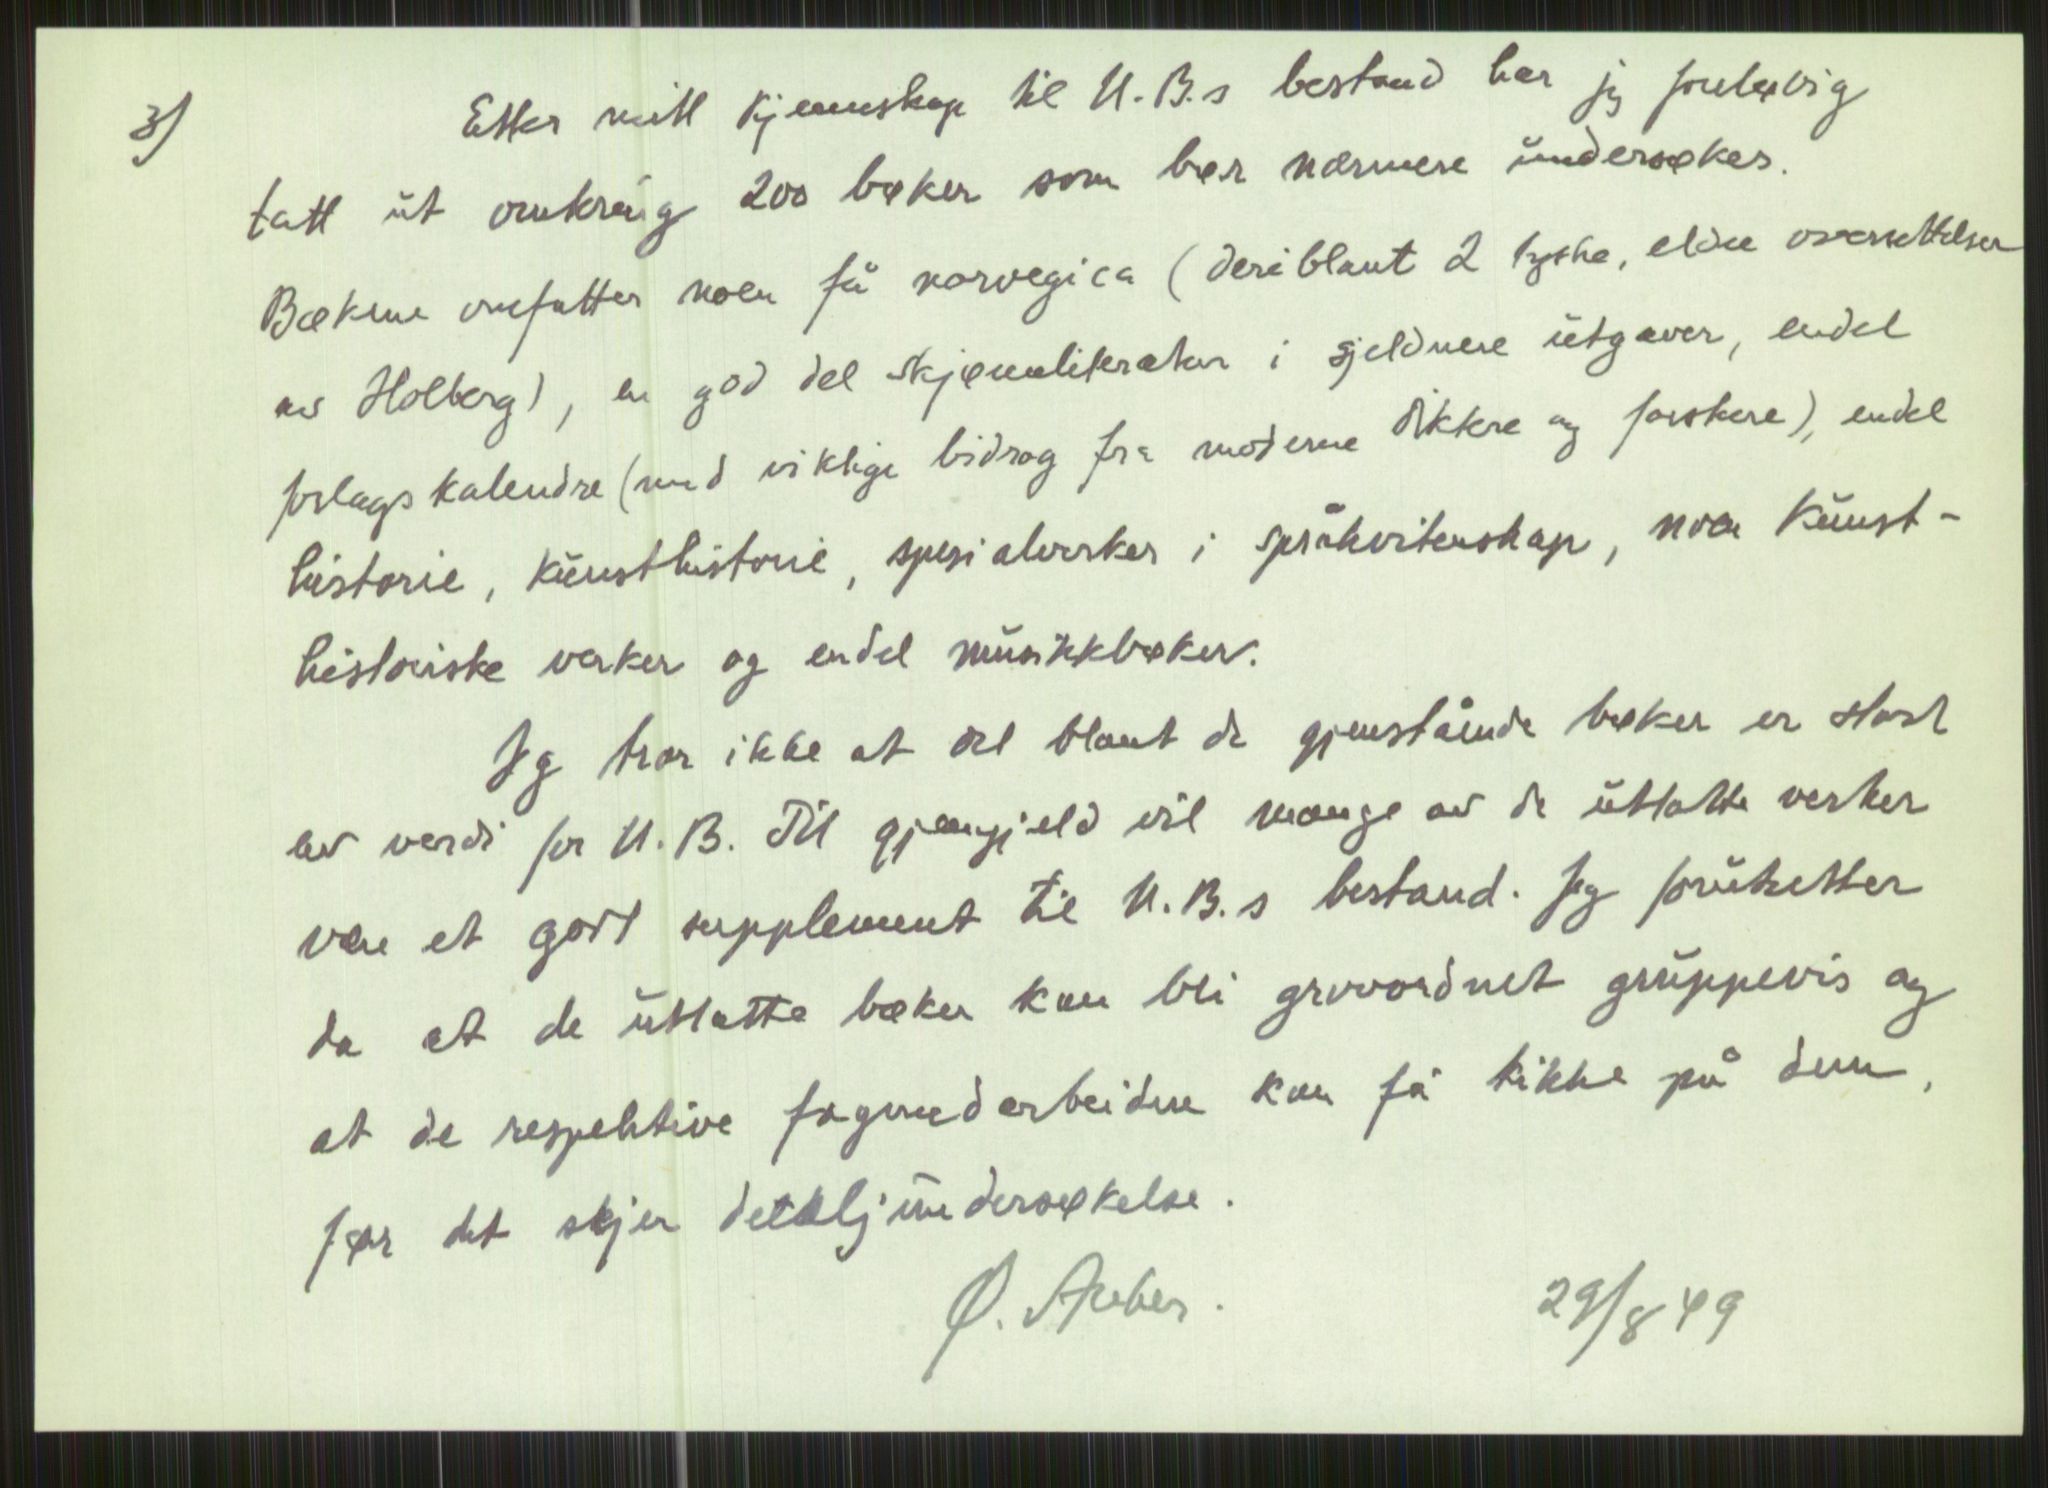 3)
Etter mitt kjennskap til U.B.s bestand har jeg foreløbig
tatt ut omkring 200 bøker som bør nærmere undersøkes.
Bøkene omfatter noen få norvegica (deriblant 2 tyske, eldre oversettelser
av Holberg), en god del skjønnliteratur i sjeldnere utgaver, endel
forlagskalendre (med viktige bidrag fra moderne diktere og forskere), endel
historie, kunsthistorie, spesialverker i språkvitenskap, noen kunst-
historiske verker og endel musikkbøker.
Jeg tror ikke at det blant de gjenstående bøker er stort
av verdi for U.B. Til gjengjeld vil mange av de uttatte verker
være et godt supplement til U.B.s bestand. Jeg forutsetter
da at de uttatte bøker kan bli grovordnet gruppevis og
at de respektive fagmedarbeidere kan få kikke på dem,
før det skjer detaljundersøkelse.
Ø. Anker.
29/8 49